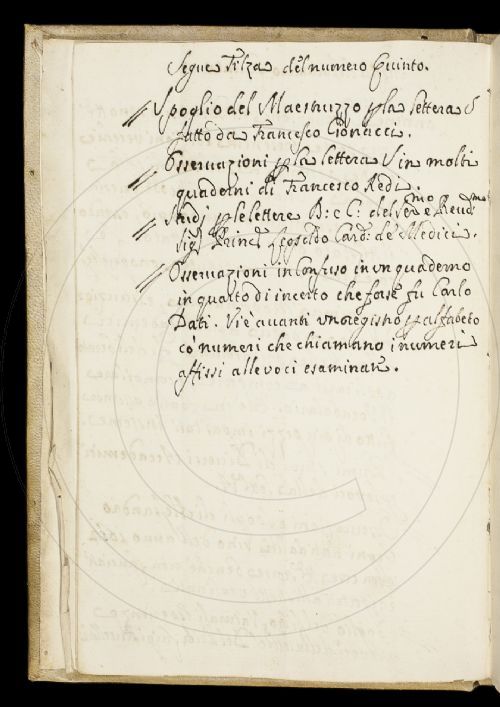 Segue Filza del numero Quinto.
Spoglio del Maestruzzo p la lettera S
fatto da Francesco Cionacci.
Osseruazioni p la lettera V in molti
quaderni di Francesco Redi.
Studj p le lettere B: e C: del Ser.mo e Reud.mo
Sig.r Princ. Leopoldo Card. de Medici.
Osseruazioni in Confuso in un quaderno
in quarto di incerto che forse fu Carlo
Dati. Vi è auanti un registro p alfabeto
co' numeri che chiamano i numeri
affissi alle voci esaminate.